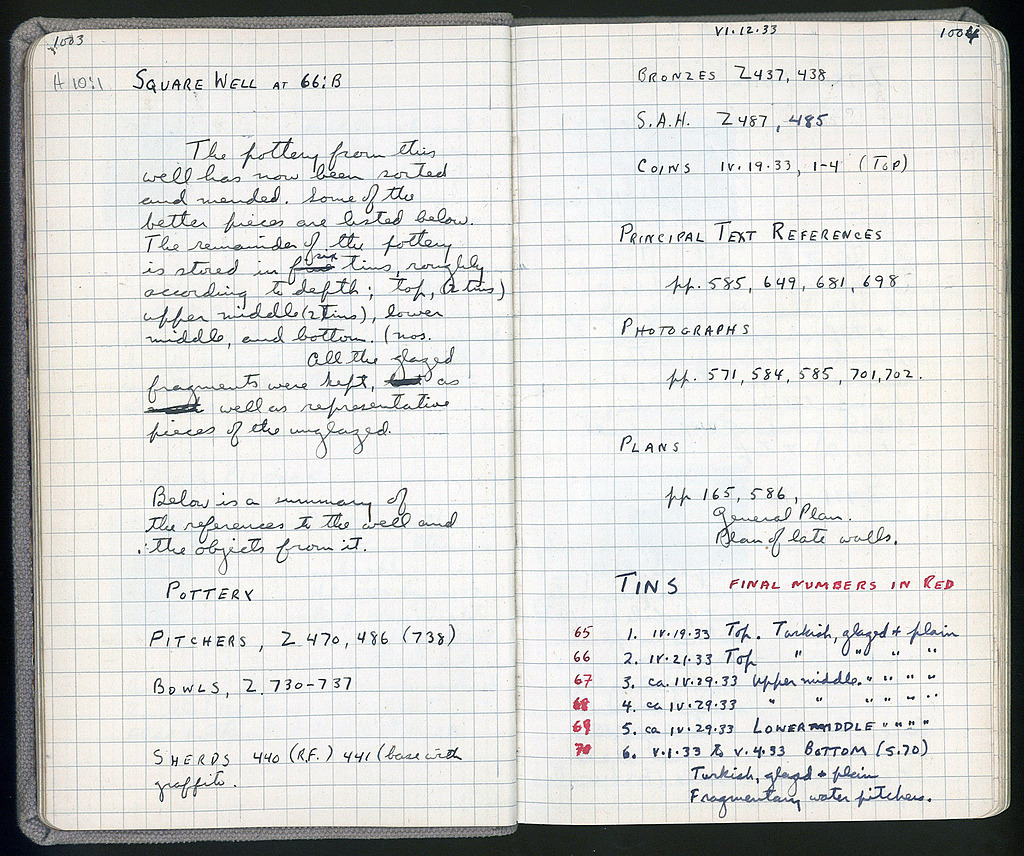 1003
H 10:1 SQUARE WELL AT 66:B
The pottery from this
well has now been sorted
and mended. Some of the
better pieces are listed below.
The remainder of the pottery
six
is stored in five tins, roughly
according to depth; top, (2 tins)
upper middle (2 tins), lower
middle, and bottom. (nos.
All the glazed
fragments were kept, as
well as representative
pieces of the unglazed.
Below is a summary of
the references to the well and
the objects from it.
POTTERY
PITCHERS, Z 470, 486 (738)
BOWLS, Z. 730-737
SHERDS 440 (R.F.) 441 (base with
graffito.
VI.12.33 1004
BRONZES Z 437, 438
S.A.H. Z 487, 485
COINS IV.19.33, 1-4 (TOP)
PRINCIPAL TEXT REFERENCES
pp. 585, 649, 681, 698
PHOTOGRAPHS
pp. 571, 584, 585, 701, 702.
PLANS
pp 165, 586,
General Plan.
Plan of late walls.
TINS FINAL NUMBERS IN RED
65 1. IV.19.33 Top. Turkish, glazed + plain
66 2. IV.21.33 Top " " " "
67 3. ca. IV.29.33 Upper middle. " " " "
68 4. ca IV.29.33 " " " " " "
69 5. ca IV.29.33 LOWER MIDDLE " " " "
70 6. V.1.33 to V.4.33 BOTTOM (5.70)
Turkish, glazed + plain
Fragmentary water pitchers.